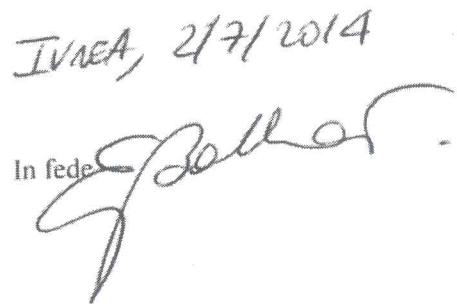 IVREA, 2/7/2014
In fede